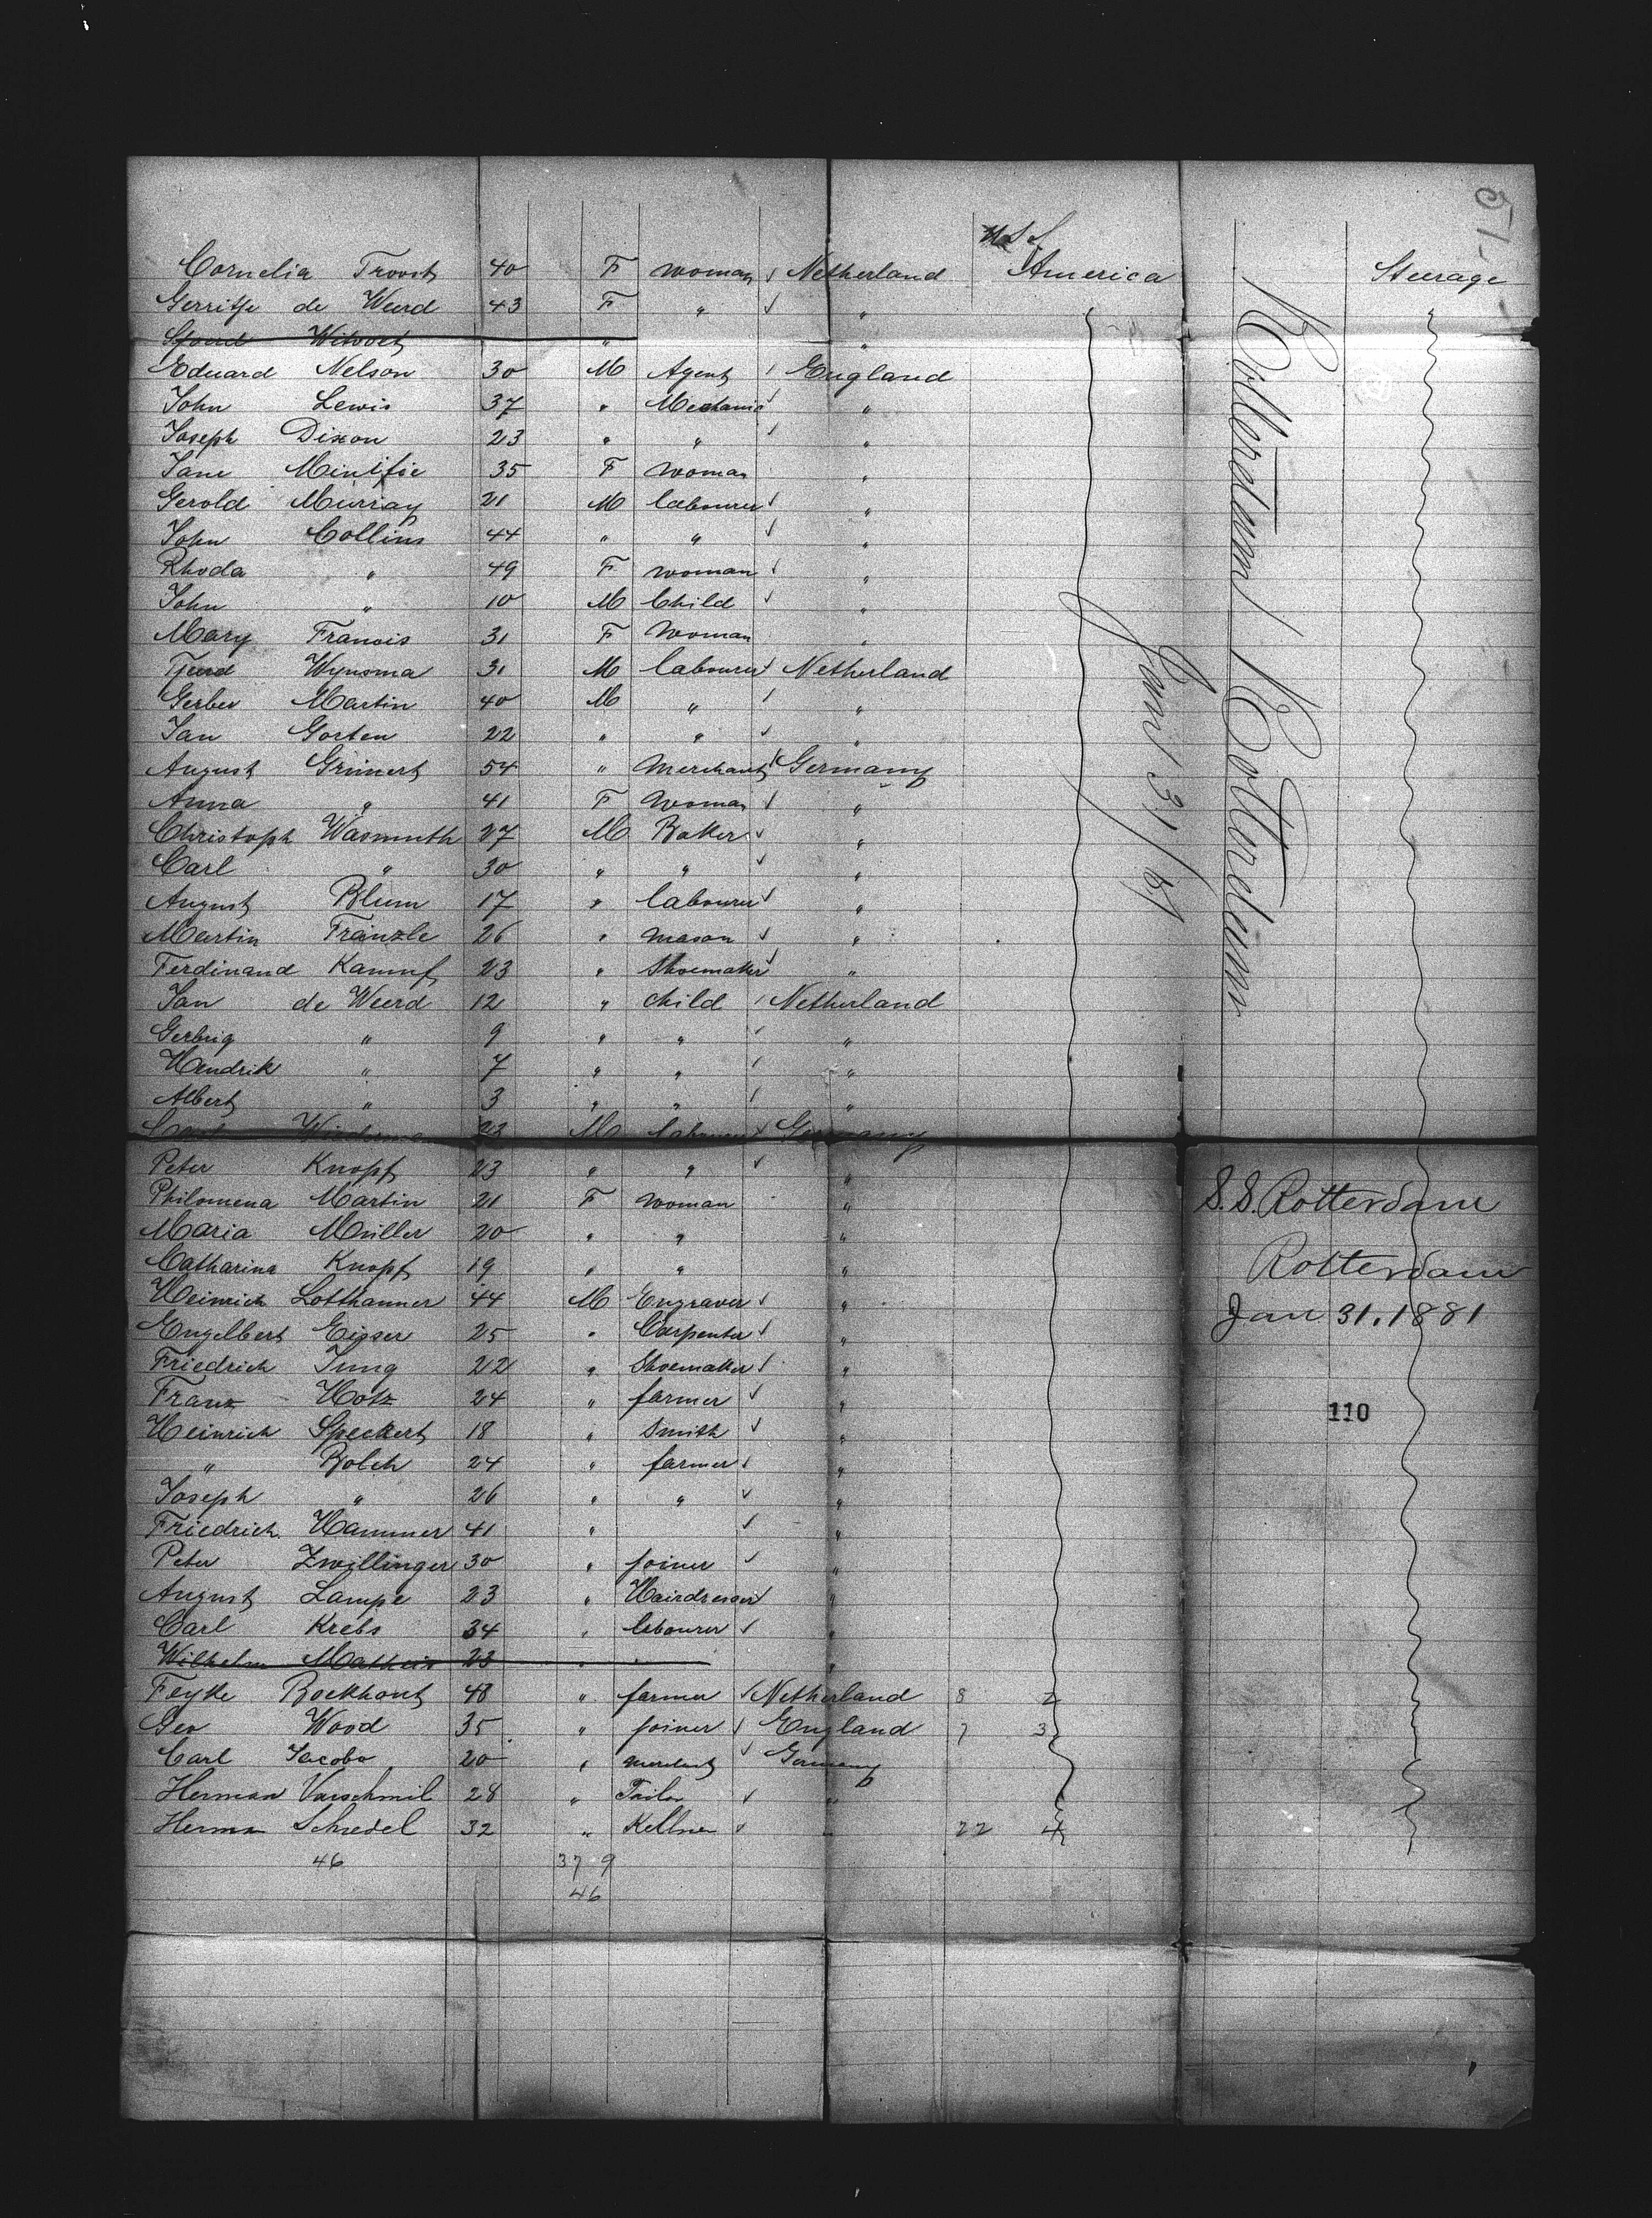 51-
U.S. of
Cornelia Troost 40 F woman Netherland America Steerage
Gerritje de Weerd 43 F " "
Sjoerd Witvoet " "
Eduard Nelson 30 M Agent England
John Lewis 37 " Mechanic "
Joseph Dixon 23 " " "
Jane Minifie 35 F woman "
Gerold Murray 21 M labourer "
John Collins 44 " " "
Rhoda " 49 F woman "
John " 10 M Child "
Mary Francis 31 F Woman "
Tjeerd Wynsma 31 M labourer Netherland
Gerber Martin 40 M " "
Jan Gorten 22 " " "
August Grünert 54 " Merchant Germany
Anna " 41 F Woman "
Christoph Wasmuth 27 M Baker "
Carl " 30 " " "
August Blum 17 " labourer "
Martin Fränzle 26 " mason "
Ferdinand Kampf 23 " Shoemaker "
Jan de Weerd 12 " child Netherland
Gerbrig " 9 " " "
Hendrik " 7 " " "
Albert " 3 " " "
Carl 23 M labourer Germany
Peter Knopf 23 " " "
Philomena Martin 21 F woman "
Maria Müller 20 " " "
Catharina Knopf 19 " " "
Heinrich Lotthammer 44 M Engraver "
Engelbert Eisser 25 " Carpenter "
Friedrich Jung 22 " Shoemaker "
Franz Hotz 24 " farmer "
Heinrich Speckert 18 " Smith "
" Bolch 24 " farmer "
Joseph " 26 " " "
Friedrich Hammer 41 " "
Peter Zwillinger 30 " joiner "
August Lampe 23 " Hairdresser "
Carl Krebs 34 " labourer "
Wilhelm Matheis 23 " " "
Feyke Boekhout 48 " farmer Netherland 8 2
Geo Wood 35 " joiner England 7 3
Carl Jacobs 20 " merchant Germany
Herman Varschmil 28 " Tailor "
Herman Schedel 32 " Kellner " 22 4
46 37 9
46
Rotterdam / Rotterdam
Jan'y 31/81
S.S. Rotterdam
Rotterdam
Jan 31. 1881
110